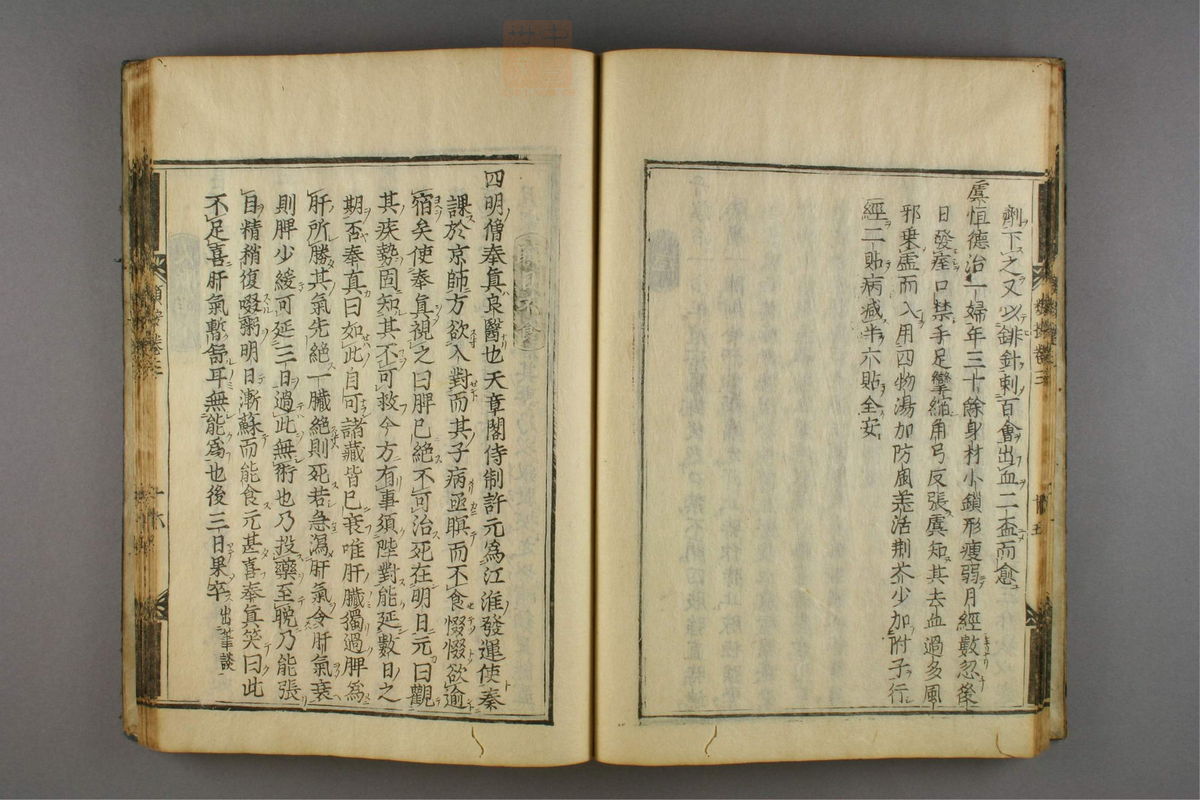 劑下之又以鋒針刺百會出血二盃而愈
虞恒德治一婦年三十餘身材小鎖形瘦弱月經數忍後
日發痙口禁手足攣縮角弓反張虞知其去血過多風
邪乗虛而入用四物湯加防風羌活荆芥少加附子行
經二貼病减半六貼全安
四明僧奉真良醫也天章閣侍制許元為江淮發運使奏
課於京師方欲入對而其子病亟瞑而不食惙惙欲逾
宿矣使奉真視之曰脾已絕不可治死在明日元曰觀
其疾勢固知其不可救今方有事須陛對能延數日之
期否奉真曰如此自可諸藏皆已衰唯肝臓獨過脾為
肝所勝其氣先絕一臓絕則死若急瀉肝氣令肝氣衰
則脾少緩可延三日過此無術也乃投藥至晚乃能張
目精稍復啜粥明日漸蘇而能食元甚喜奉真笑曰此
不足喜肝氣暫舒耳無能為也後三日果卒 出筆談